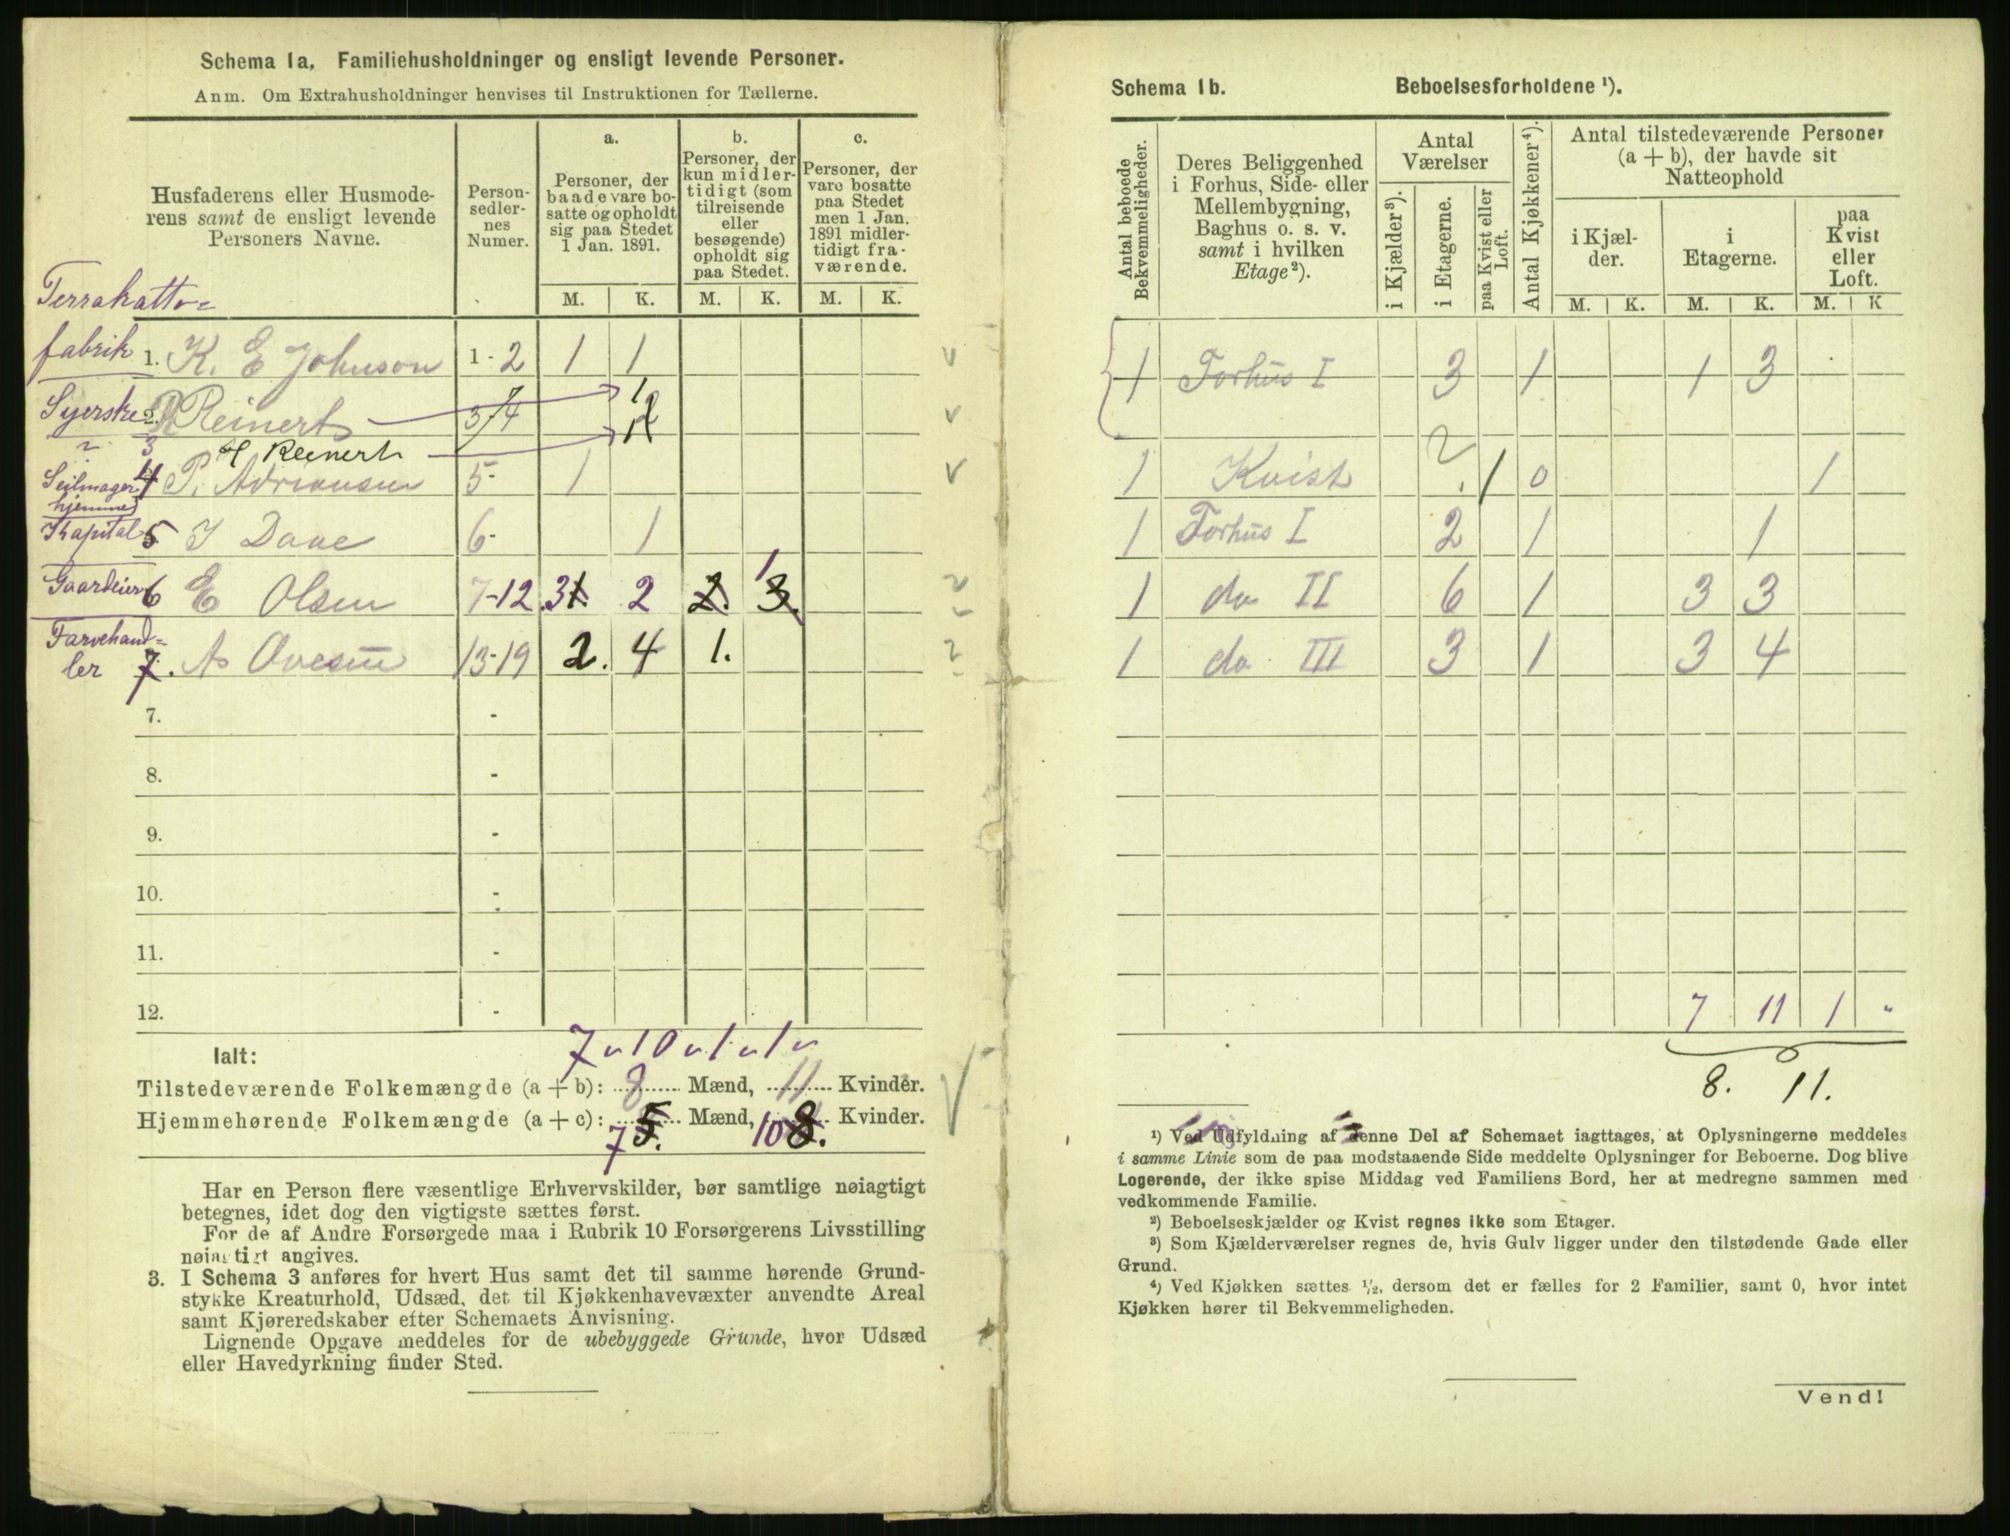 Schema 1a. Familiehusholdninger og ensligt levende Personer.
Anm. Om Extrahusholdninger henvises til Instruktionen for Tællerne.
Husfaderens eller Husmode-
rens samt de ensligt levende
Personers Navne.
Person-
sedler-
nes
Numer.
a.
Personer, der
baade vare bo-
satte og opholdt
sig paa Stedet
1 Jan. 1891.
M. K.
b.
Personer, der
kun midler-
tidigt (som
tilreisende
eller
besøgende)
opholdt sig
paa Stedet.
M. K.
c.
Personer, der
vare bosatte
paa Stedet
men 1 Jan.
1891 midler-
tidigt fra-
værende.
M. K.
Terrakatto=
fabrik 1. K. E Johnson 1-2 1 1
Syerske 2 R Reinert 3-4 1
" 3 H Reinert 1
Seilmager 4 P. Adriansen 5- 1
hjemme
Kapital 5 I Dave 6- 1
Gaardeier 6 E Olsen 7-12 3 2 1
Farvehand=
ler 7. As Ovesen 13-19 2. 4 1.
7. -
8. -
9. -
10. -
11. -
12. -
7 " 10 " 1 " 1 "
Ialt:
Tilstedeværende Folkemængde (a + b): 8 Mænd, 11 Kvinder.
Hjemmehørende Folkemængde (a + c): 5 Mænd, 8 Kvinder.
7 10
Har en Person flere væsentlige Erhvervskilder, bør samtlige nøiagtigt
betegnes, idet dog den vigtigste sættes først.
For de af Andre Forsørgede maa i Rubrik 10 Forsørgerens Livsstilling
nøiagtigt angives.
3. I Schema 3 anføres for hvert Hus samt det til samme hørende Grund-
stykke Kreaturhold, Udsæd, det til Kjøkkenhavevæxter anvendte Areal
samt Kjøreredskaber efter Schemaets Anvisning.
Lignende Opgave meddeles for de ubebyggede Grunde, hvor Udsæd
eller Havedyrkning finder Sted.
Schema 1b. Beboelsesforholdene ¹).
Antal beboede
Bekvemmeligheder.
Deres Beliggenhed
i Forhus, Side- eller
Mellembygning,
Baghus o. s. v.
samt i hvilken
Etage²).
Antal
Værelser
i Kjælder³).
i Etagerne.
paa Kvist eller
Loft.
Antal Kjøkkener⁴).
Antal tilstedeværende Personer
(a + b), der havde sit
Natteophold
i Kjæl-
der.
M. K.
i
Etagerne.
M. K.
paa
Kvist
eller
Loft.
M. K
1 Forhus I 3 1 1 3
1 Kvist 1 0 1
1 Forhus I 2 1 1
1 do II 6 1 3 3
1 do III 3 1 3 4
7 11 1 "
8. 11.
¹) Ved Udfyldning af denne Del af Schemaet iagttages, at Oplysningerne meddeles
i samme Linie som de paa modstaaende Side meddelte Oplysninger for Beboerne. Dog blive
Logerende, der ikke spise Middag ved Familiens Bord, her at medregne sammen med
vedkommende Familie.
²) Beboelseskjælder og Kvist regnes ikke som Etager.
³) Som Kjælderværelser regnes de, hvis Gulv ligger under den tilstødende Gade eller
Grund.
⁴) Ved Kjøkken sættes ½, dersom det er fælles for 2 Familier, samt 0, hvor intet
Kjøkken hører til Bekvemmeligheden.
Vend!